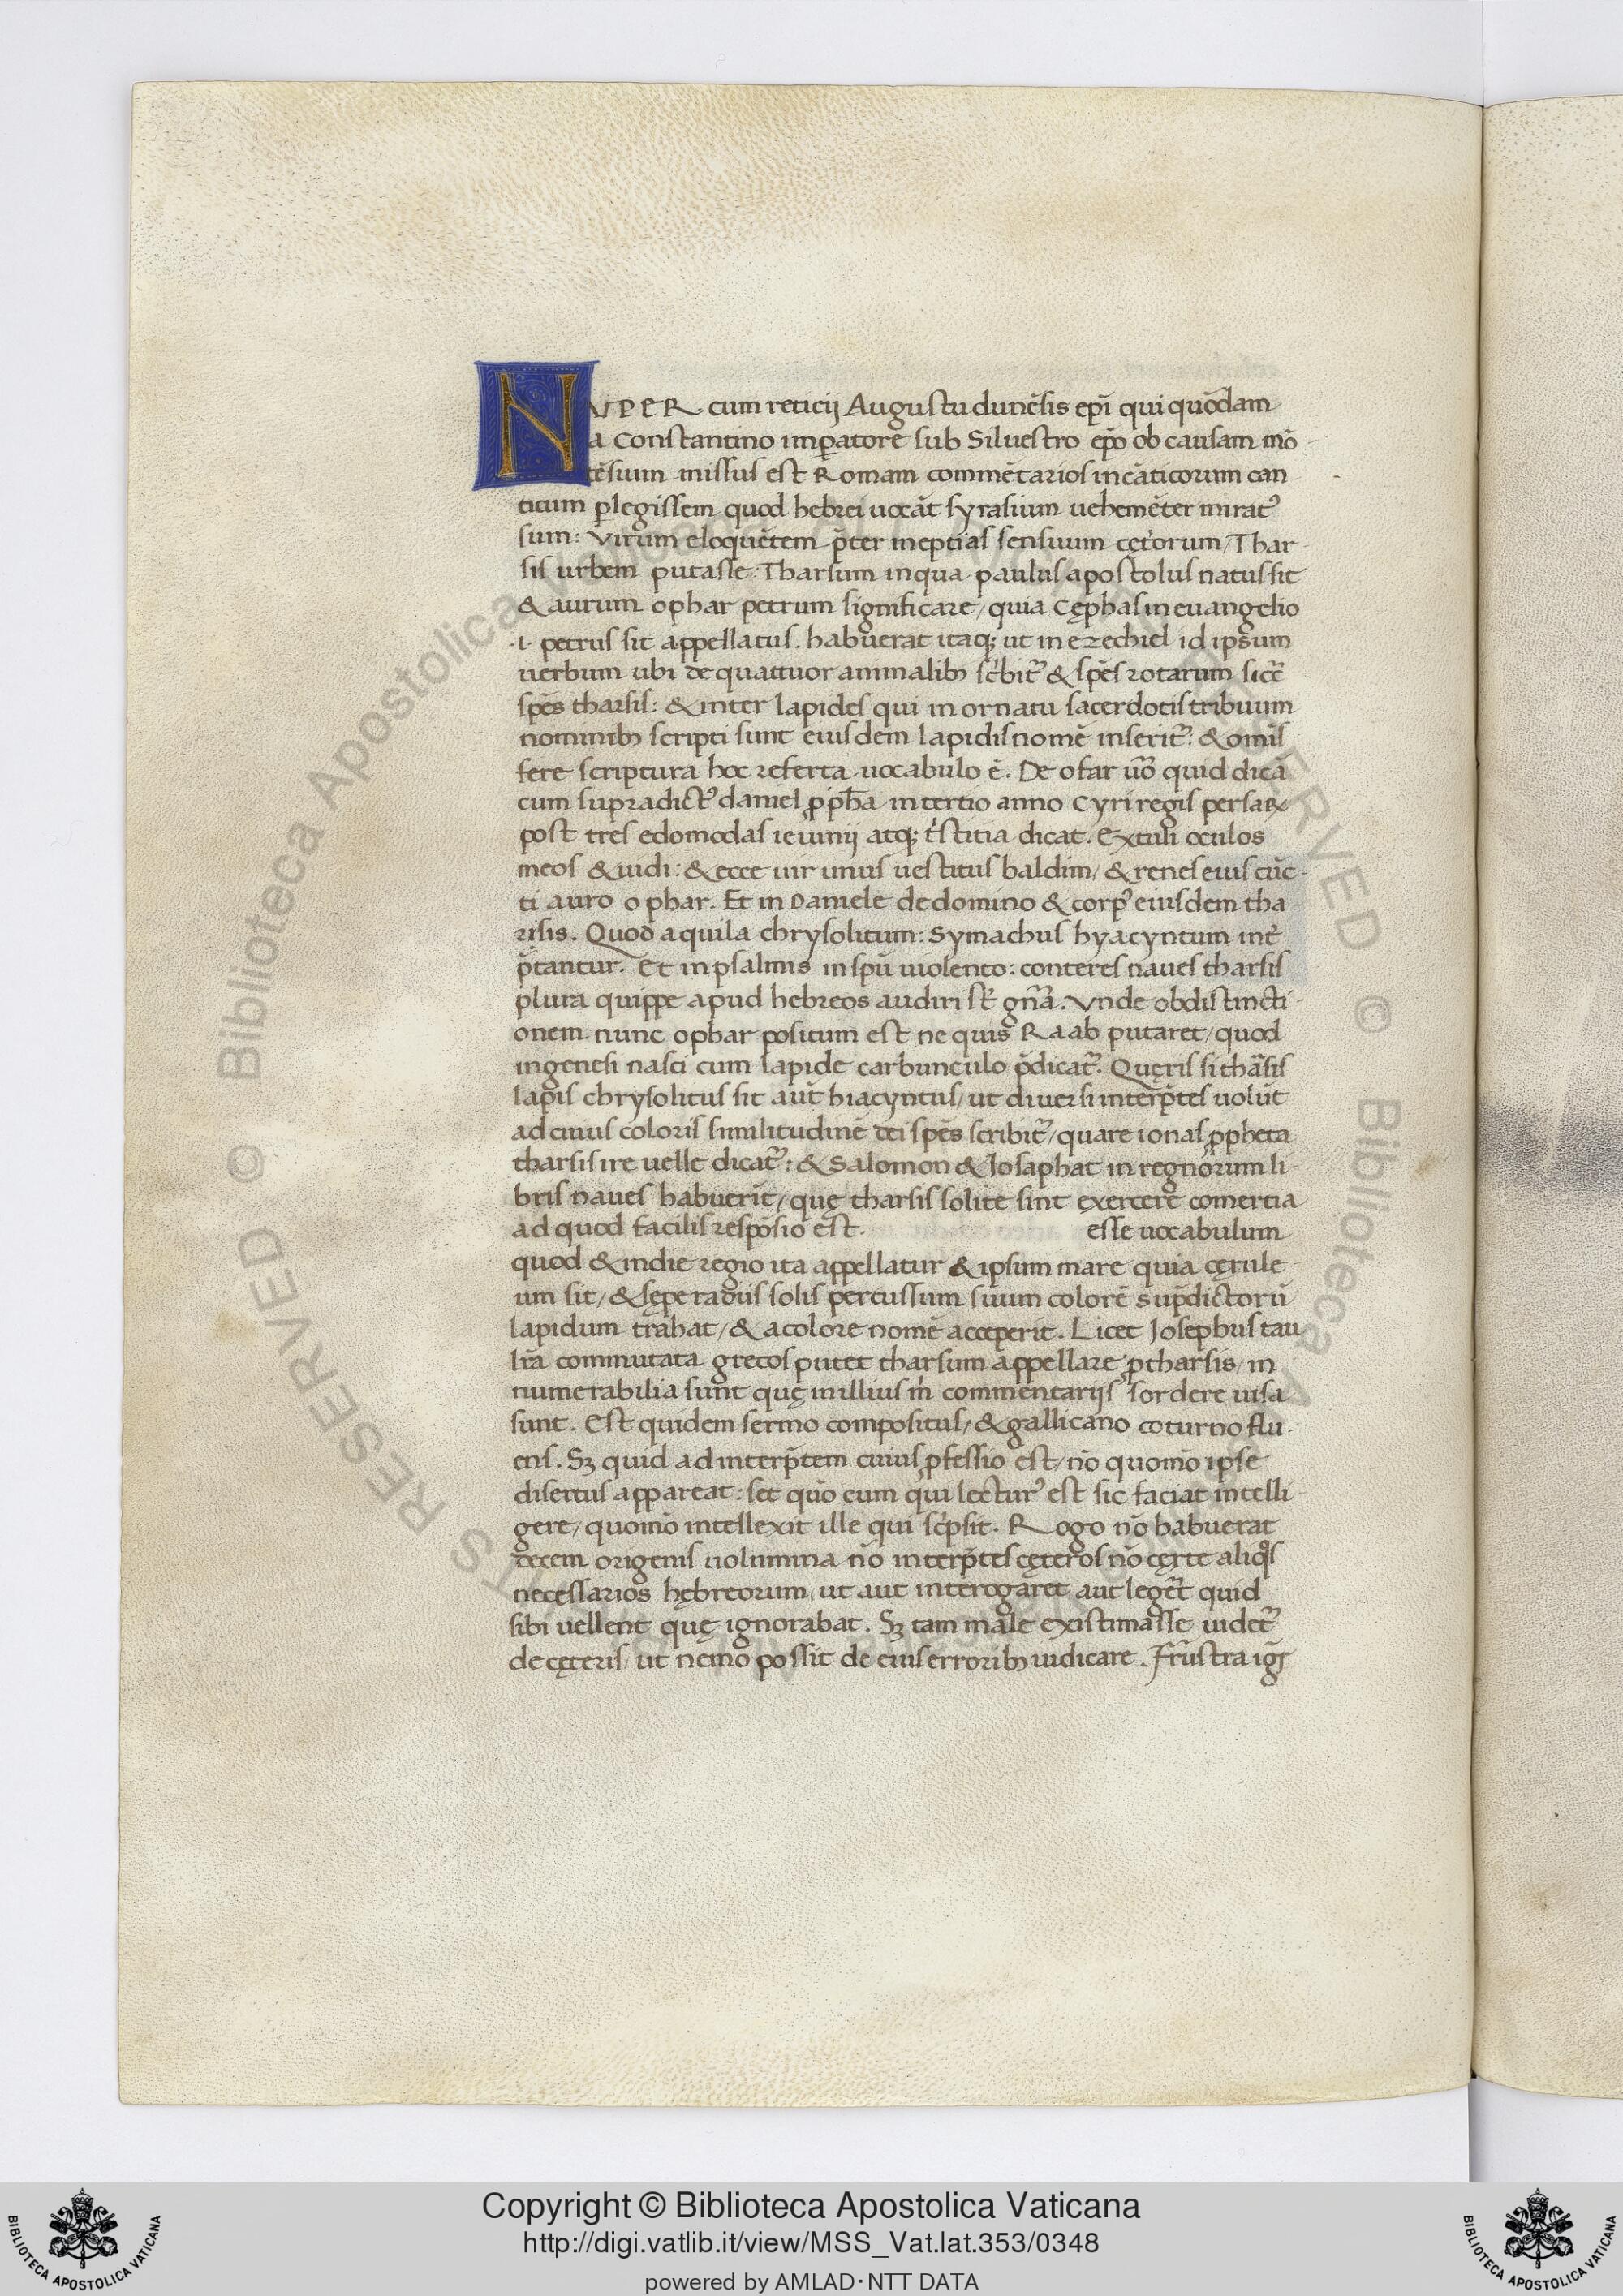 NUPER cum reticij Augustudunēsis ep̄i qui quōdam
a Constantino imp̄atore sub Siluestro ep̄o ob causam mō
tēsium missus est Romam commētarios in cāticorum can
ticum p̱legissem quod hebrei uocāt syrasiium uehemēter mirat᾽
sum: virum eloquētem p̄ter ineptias sensuum cęt᾽orum/ Thar
sis urbem putasse: Tharsum in qua paulus apostolus natus sit
& aurum ophar petrum significare/ quia Cęphas in euangelio
.i. petrus sit appellatus. habuerat itaq; ut in ezechiel id ipsum
uerbum ubi de quattuor animalib᾽ sc᾽bit᾽ & spēs rotarum sic᾽
spēs tharsis: & inter lapides qui in ornatu sacerdotis tribuum
nominib᾽ scripti sunt eiusdem lapidis nomē inserit᾽: & omīs
fere scriptura hoc referta uocabulo ē. De ofar ūo quid dicā
cum supradict᾽ daniel ꝓph̄a in tertio anno Cyri regis persaꝝ
post tres edomodas ieiunij atq; t᾽stitia dicat. Extuli oculos
meos & uidi: & ecce uir unus uestitus baldim/ & renes eius cūc
ti auro ophar. Et in Daniele de domino & corp᾽ eiusdem tha
risis. Quod aquila chrysolitum: Symachus hyacyntum int᾽
p̄tantur. Et in psalmis in spū uiolento: conteres naues tharsis
plura quippe apud hebreos audiri st᾽ gn̄a. Vnde ob distincti
onem nunc ophar positum est ne quis Raab putaret/ quod
in genesi nasci cum lapide carbunculo p̄dicat᾽. Quęris si thāsis
lapis chrysolitus sit aūt hiacyntus/ ut diuersi interp̄tes uolūt
ad cuius coloris similitudinē dei spēs scribit᾽/ quare ionas ꝓpheta
tharsis ire uelle dicat᾽: & Salomon & Iosaphat in regnorum li
bris naues habuerīt/ quę tharsis solite sint exercere comertia
ad quod facilis respōsio est. esse uocabulum
quod & indie regio ita appellatur & ipsum mare quia cęrule
um sit/ & sępe radiis solis percussum suum colorē sup̄dictorū
lapidum trahat/ & a colore nomē acceperit. Licet Iosephus tau
lr̄a commutata grecos putet tharsum appellare ꝓ tharsis/ in
numerabilia sunt quę in illius m᾽ commentarijs sordere uisa
sunt. Est quidem sermo compositus/ & gallicano coturno flu
ens. Sꝫ quid ad interp̄tem cuius ꝓfessio est/ nō quomō ipse
disertus appareat: set quō eum qui lectur᾽ est sic faciat intelli
gere/ quomō intellexit ille qui sc᾽psit. Rogo nō habuerat
decem origenis uolumina nō interp̄tes cęteros nō cęrte aliqͦs
necessarios hębreorum/ ut aut interogāret aut leger᾽t quid
sibi uellent quę ignorabat. Sꝫ tam male existimasse uidet᾽
de cęteris/ ut nemo possit de eius errorib᾽ iudicare. Frustra ig᾽r
Copyright © Biblioteca Apostolica Vaticana
http://digi.vatlib.it/view/MSS_Vat.lat.353/0348
powered by AMLAD·NTT DATA
BIBLIOTECA APOSTOLICA VATICANA
BIBLIOTECA APOSTOLICA VATICANA